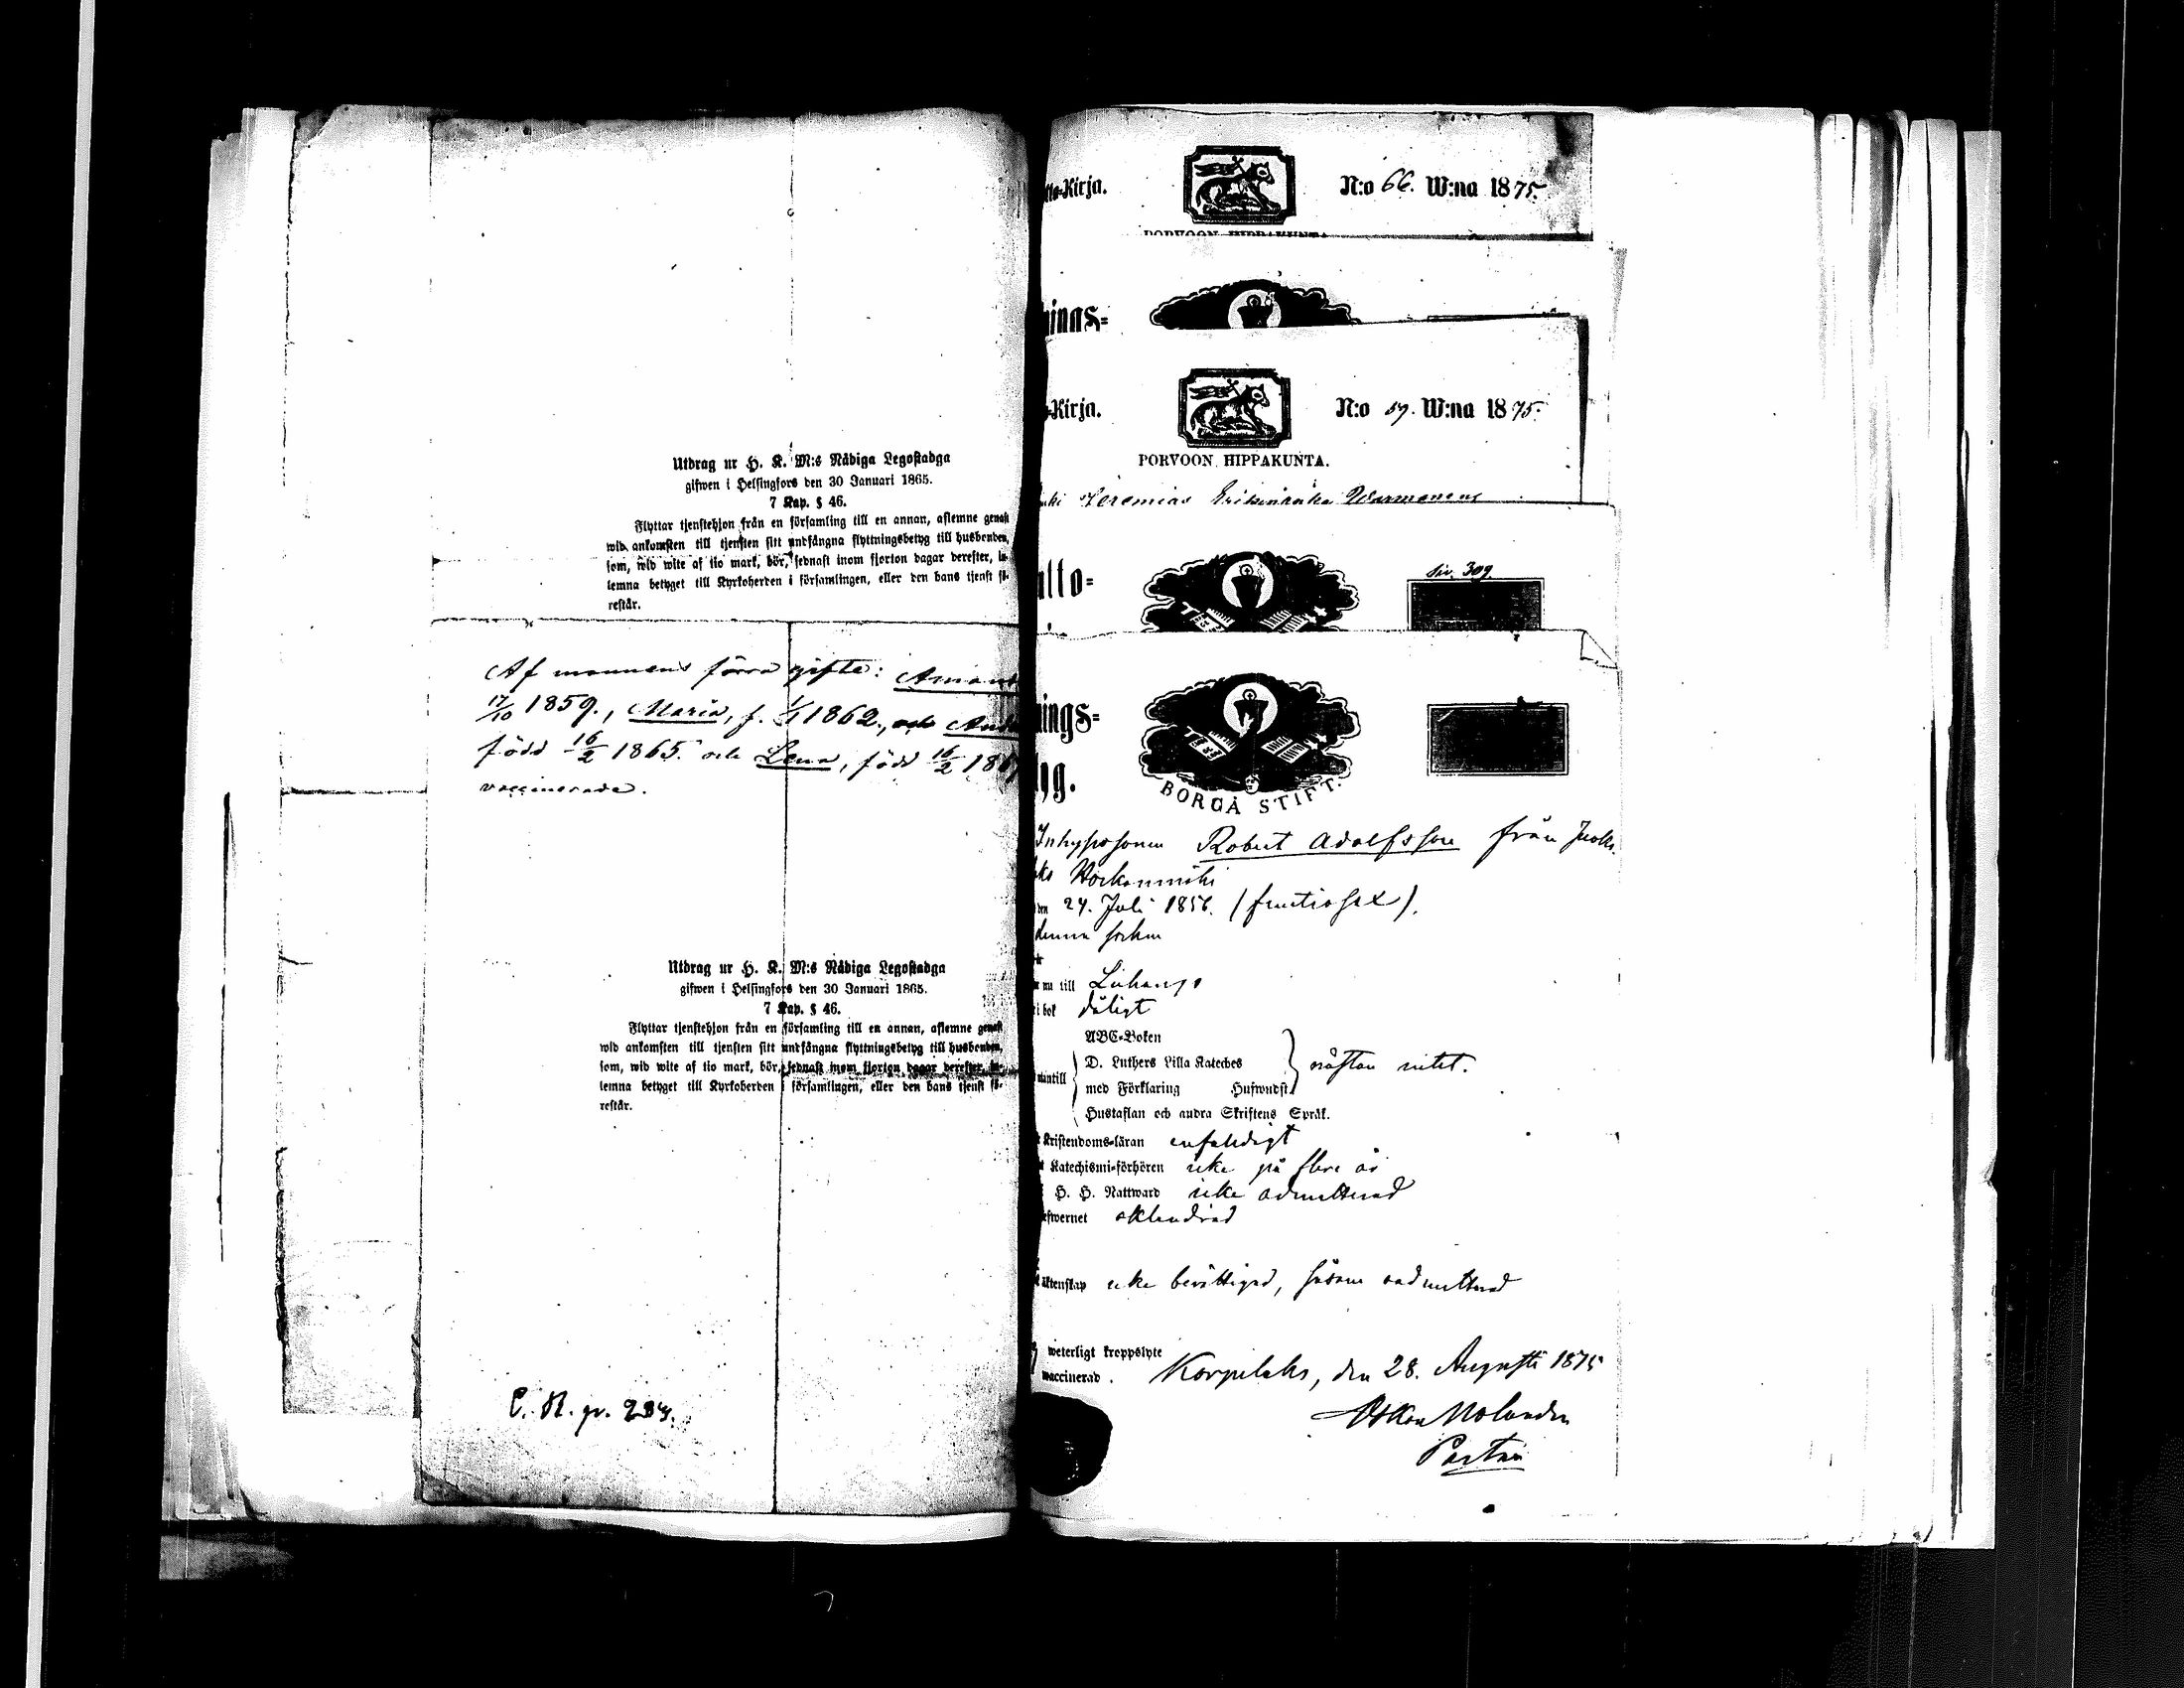 Utdrag ur H. K. M:s Nådiga Legostadga
gifwen i Helsingfors den 30 Januari 1865.
7 Kap. § 46.
Flyttar tjenstehjon från en församling till en annan, aflemne genast
wid ankomsten till tjensten sitt undfångna flyttningsbetyg till husbonden,
som, wid wite af tio mark, bör, sednast inom fjorton dagar derefter, in-
lemna betyget till Kyrkoherden i församlingen, eller den hans tjenst fö-
restår.
Af mannens förra gifte: Aman
17/10 1859., Maria, f. 1/1 1862., och And
född 16/2 1865. och Lena, född 16/2 186
vaccinerade.
Utdrag ur H. K. M:s Nådiga Legostadga
gifwen i Helsingfors den 30 Januari 1865.
7 Kap. § 46.
Flyttar tjenstehjon från en församling till en annan, aflemne genast
wid ankomsten till tjensten sitt undfångna flyttningsbetyg till husbonden,
som, wid wite af tio mark, bör, sednast inom fjorton dagar derefter, in-
lemna betyget till Kyrkoherden i församlingen, eller den hans tjenst fö-
restår.
C. R. p. 234.
tto-Kirja.
N:o 66. W:na 1875.
PORVOON HIPPAKUNTA
nings=
-Kirja.
N:o 57. W:na 1875.
PORVOON HIPPAKUNTA.
Jeremias
utto=
Siv. 309.
nings=
yg.
BORGÅ STIFT.
Inhysesonen Robert Adolfsson från
den 24. Juli 1856. (femtiosex).
denna socken
nu till Luhango
i bok dåligt
ABC-Boken
D. Luthers Lilla Kateches
utantill
med Förklaring Hufwudst.
nästan intet.
Hustaflan och andra Skriftens Språk.
Kristendoms-läran enfaldigt
Katechismi-förhören icke på flere år
H. H. Nattward icke admitterad
efwernet oklandrad
äktenskap icke berättigad, såsom oadmitterad
weterligt kroppslyte
waccinerad.
Korpilaks, den 28. Augusti 1875
Oskar Molander
Pastor